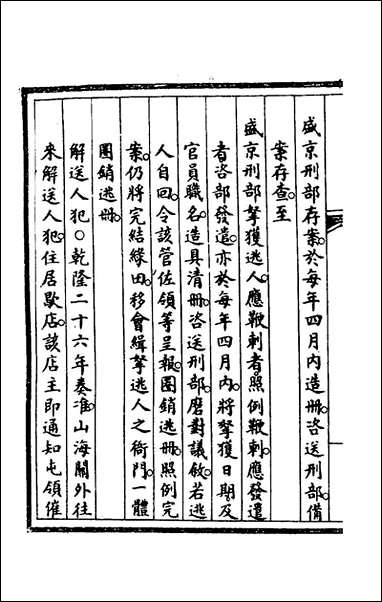 盛京刑部存案於每年四月內造冊咨送刑部備
案存查至
盛京刑部拏獲逃人應鞭刺者照例鞭刺應發遣
者咨部發遣亦於每年四月內將拏獲日期及
官員職名造具清冊咨送刑部磨對議敘若逃
人自回令該管佐領等呈報圈銷逃冊照例完
案仍將完結緣由移會緝拏逃人之衙門一體
圈銷逃冊
解送人犯○乾隆二十六年奏准山海關外往
來解送人犯住居歇店該店主即通知屯領催